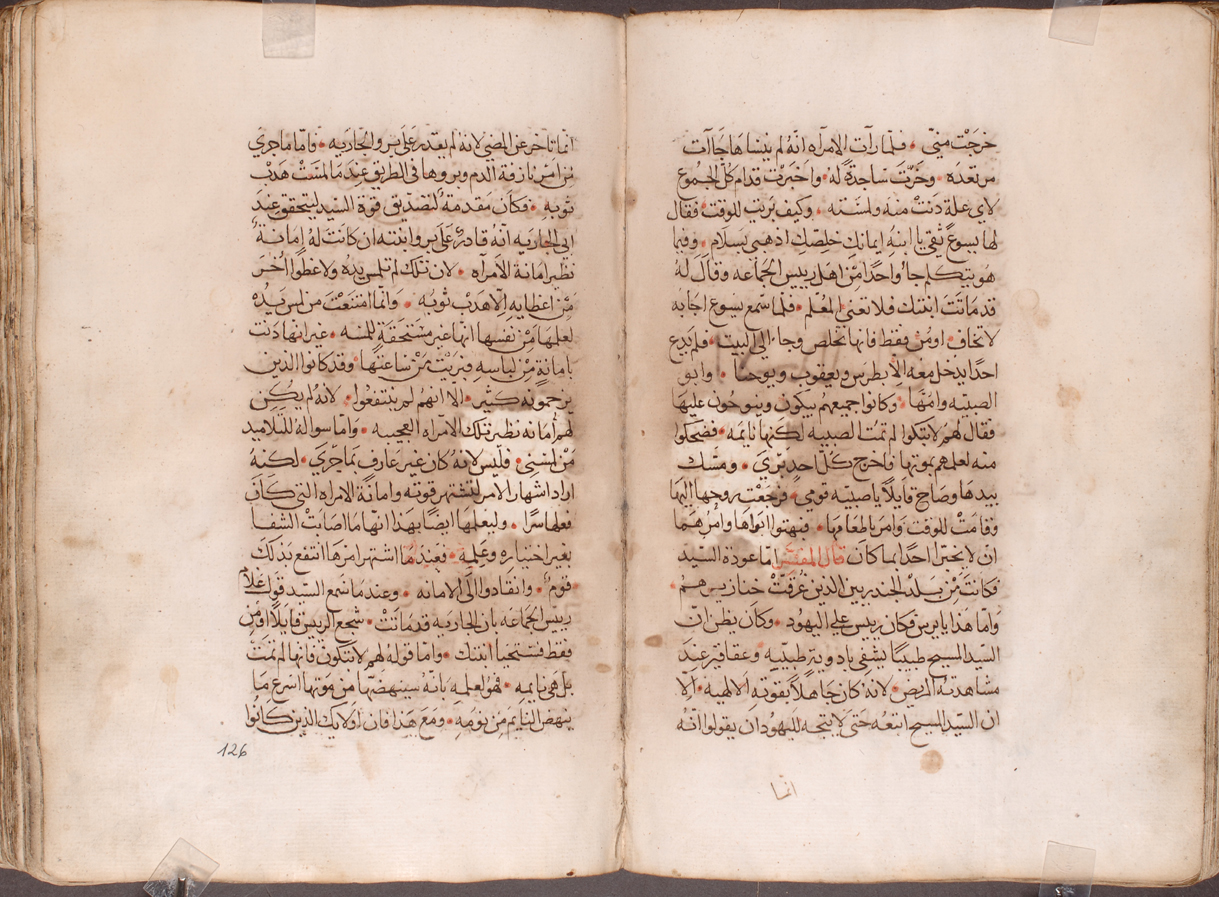 خرجت مني • فلما رأت الامرآه انهُ لم ينساها جَاآت
مرتعده • وخرّت ساجدةً له • واخبرت قدام كل الجموع
لاي علة دنت منه ولمسته • وكيف بريت للوقت • فقال
لها يسوع ثقي يا ابنه ايمانك خلصك اذهبي بسلام • وفيما
هو يتكلم جاُ واحدًا مِن اهل رييس الجماعه وقال لهُ
قد ماتت ابنتك فلا تعني المعلم • فلما سمع يسوع اجابه
لا تخاف • اومن فقط فانها تخلص وجاء الى البيت • فلم يدع
احدًا يدخل معه الا بطرس ويعقوب ويوحنا • وابو
الصبيه وامها • وكانوا جميعهم يبكون وينوحون عليها
فقال لهم لا تبكوا لم تمت الصبيه لكنها نايمه • فضحكوا
منه لعلمهم بموتها فاخرج كل احدٍ برّي • ومسك
بيدها وصاح قايلاً يا صبيه قومي • فرجعت روحها اليها
وقامت للوقت وامر باطعامها • فبهتوا ابواها وامرُهما
ان لا يخبرا احدًا بما كان قال المفسّر امّا عودة السيّد
فكانت مِن بلد الجندريين الذين غرقت خنازيرهم •
وامّا هذا يابرس فكان رييس على اليهود • وكان يظن ان
السيّد المسيح طبيبًا يشفي بادوية طبيّه • وعقاقير عند
مشاهدته المريض • لانه كان جاهلاً بقوته الالهيه • الا
ان السيّد المسيح اتبعه حتى لا يتجه لليهود ان يقولوا انّه
انما
انّما تاخر عن المضي لانهُ لم يقدر على برو الجاريه • فامّا ما جري
مِن امر نازفة الدم وبروها في الطريق عند ما لمست هدب
ثوبهِ • فكان مقدمةً لتصديق قوة السيّد ليتحقق عند
ابي الجاريه انهُ قادرٌ على برو ابنته ان كانت له امانةٌ
نظير امانة الامرآه • لان تلك لم تلمس يدهُ ولا عضوًا اخر
مِن اعضايه الا هدب ثوبه • وانما امتنعت من لمس يدُه
لعلمها مِن نفسها انها غير مستحقة للمسه • غير انها دنت
بامانةٍ مِن لباسه فبريت مِن ساعتها • وقد كانوا الذين
يزحمونه كثير • الا انهم لم ينتفعوا • لانه لم يكن
لهم أمانه نظير تلك الامراه العجيبه • وامّا سواله للتلاميد
مَن لمسني • فليس لانه كان غير عارف بما جري • لكنهُ
اراد اشهار الامر لتشتهر قوته وامانة الامراه التي كان
فعلها سرًا • وليعلمها ايضًا بهذا انها ما اصابت الشفا
بغير اختياره وعلمه • فعند ما اشتهر امرها انتفع بذلك
قومٌ • وانقادوا الى الامانه • وعندما سمع السيّد قول غلام
رييس الجماعه بان الجاريه قد ماتت • شجع الرييس قايلاً اومن
فقط فستحيا ابنتك • واما قوله لهم لا تبكون فانها لم تمت
بل هي نايمه • فهو لعلمه بانه سينهضها من موتها اسرع ما
ينهض النايم من نومه • ومع هذا فان اولايك الذين كانوا
126